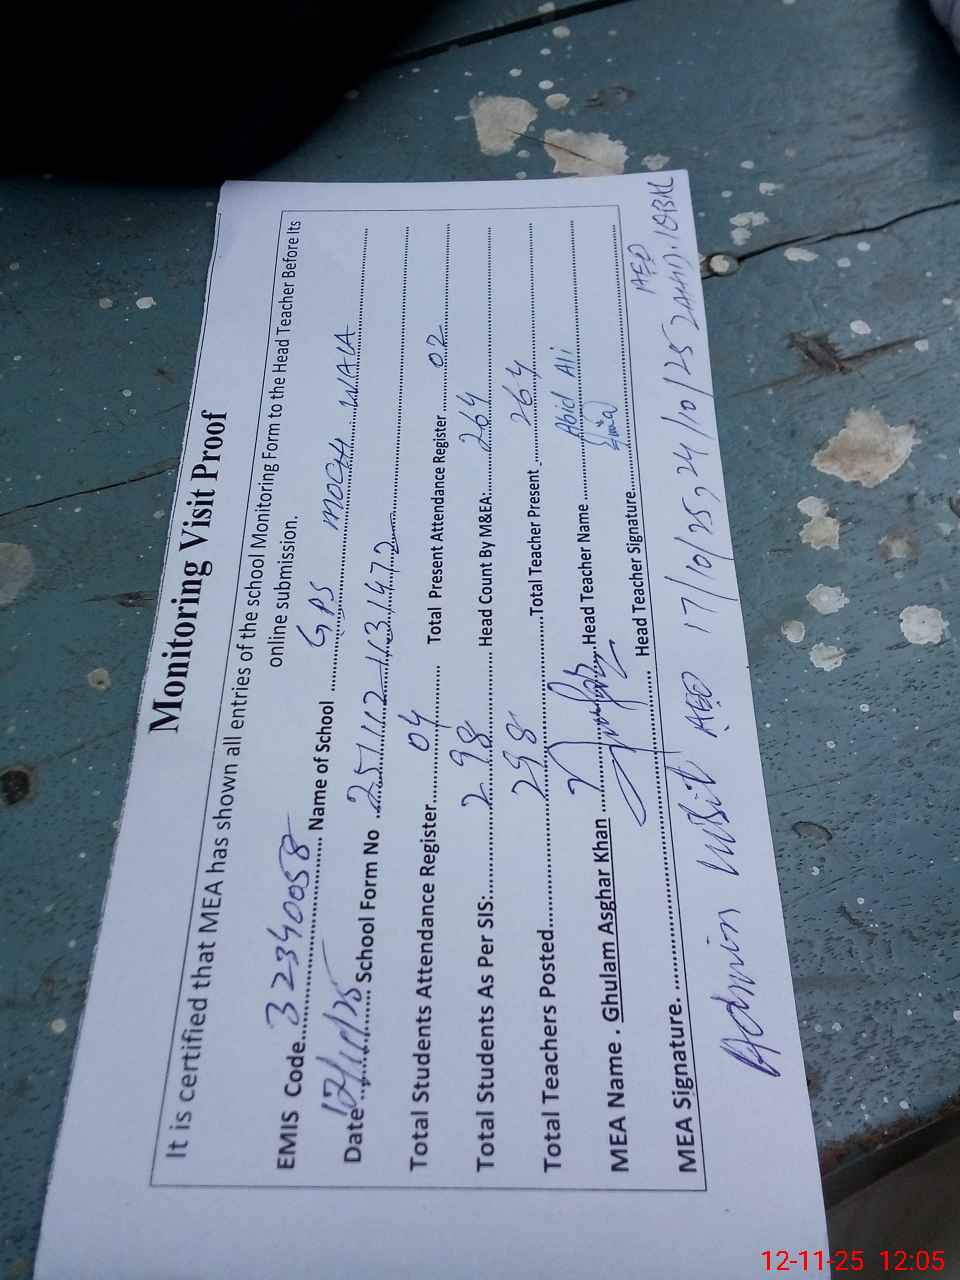 Monitoring Visit Proof
It is certified that MEA has shown all entries of the school Monitoring Form to the Head Teacher Before Its
online submission.
EMIS Code...32340058... Name of School ...GPS MOCHI WALA...
Date...12/11/25... School Form No ...25111211131472...
Total Students Attendance Register...04... Total Present Attendance Register...02...
Total Students As Per SIS:...298... Head Count By M&EA:...264...
Total Teachers Posted...298... Total Teacher Present...264...
MEA Name . Ghulam Asghar Khan ... Head Teacher Name ...Abid Ali
MEA Signature. ... Head Teacher Signature...
AEO
Admin Visit AEO 17/10/25, 24/10/25 ZAHID.IQBAL
12-11-25 12:05